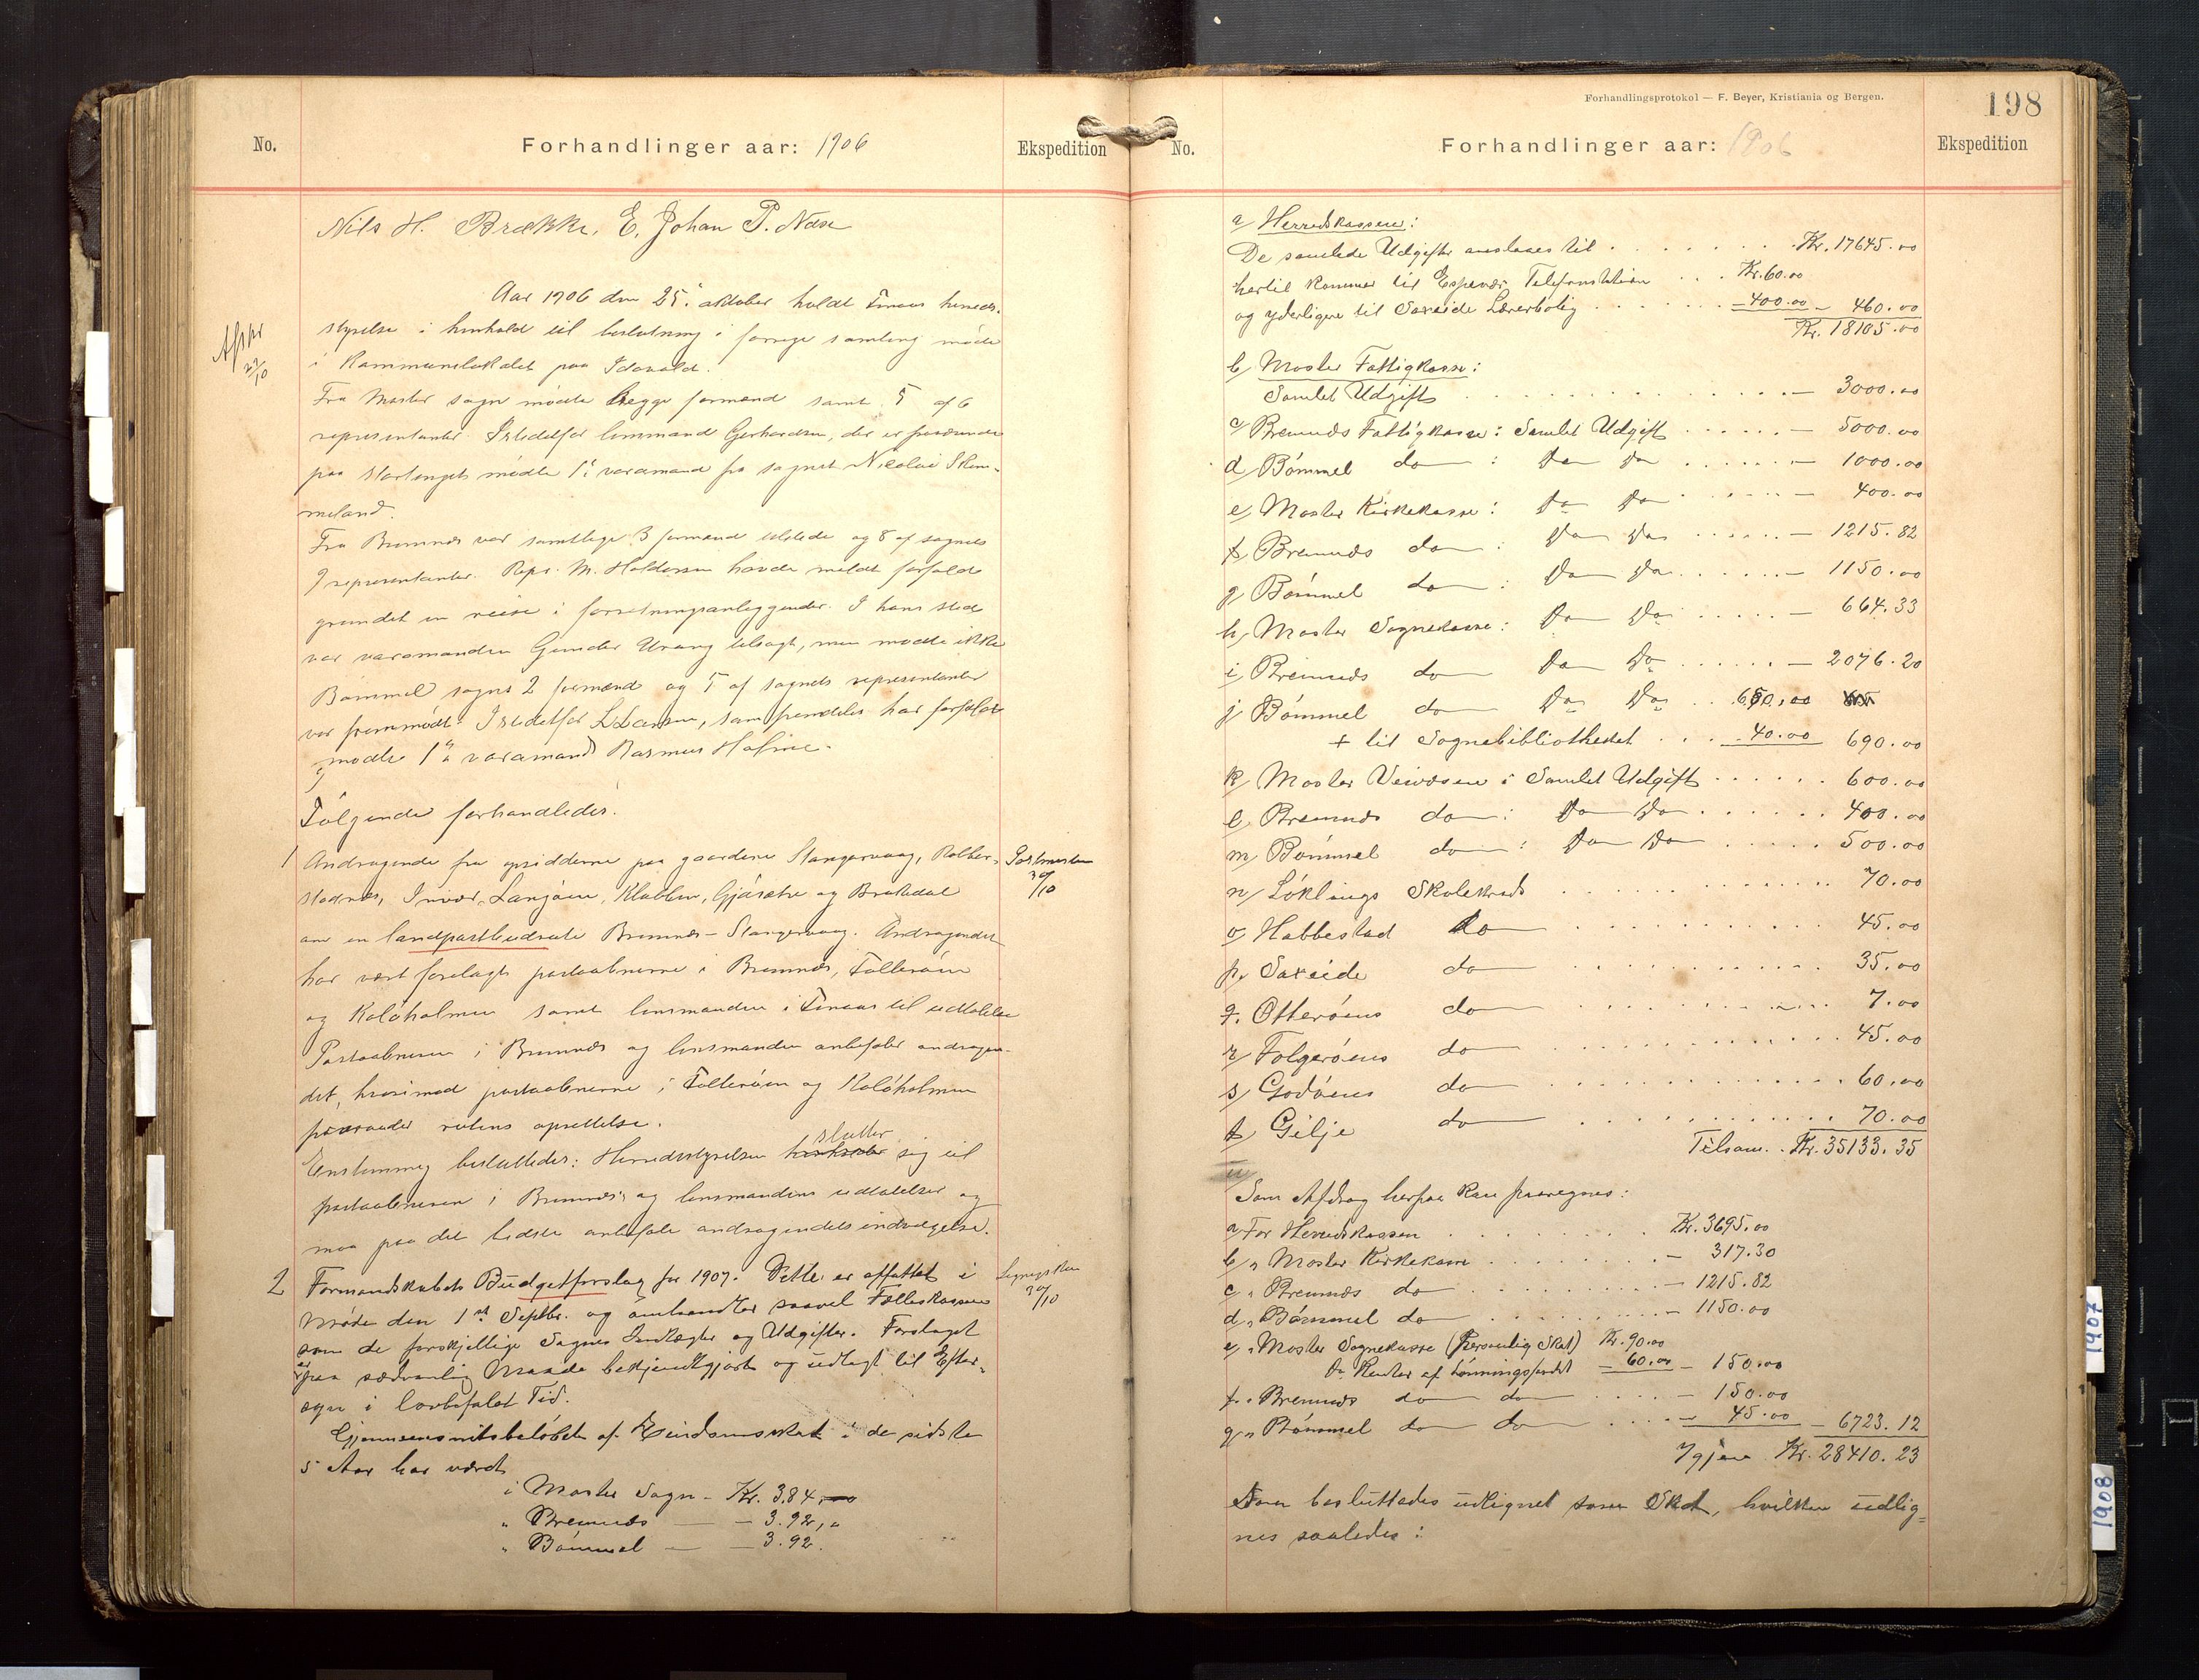 No.
Forhandlinger aar: 1906
Ekspedition
Nils H. Brække, E. Johan P. Næse
Afskr
27/10
Aar 1906 den 25. oktober holdt Finaas herreds-
styrelse i henhold til beslutning i forrige samling møde
i Kommunelokalet paa Idavold.
Fra Moster sogn mødte begge formænd samt 5 af 6
representanter. Istedetfor lensmand Gerhardsen, der er fraværende
paa Stortinget mødte 1ste varamand fra sognet Nicolai Skim-
meland.
Fra Bremnes var samtlige 3 formænd tilstede og 8 af sognets
9 representanter. Repr. M. Haldorsen havde meldt forfald
grundet en reise i forretningsanliggender. I hans sted
var varamanden Gunder Urang tilsagt, men mødte ikke
Bømmel sogns 2 formænd og 5 af sognets representanter
var fremmødt. Istedetfor L. Larsen, som fremdeles har forfald
mødte 1ste varamand Rasmus Hofine.
Følgende forhandledes:
1 Andragende fra opsidderne paa gaardene Stangervaag, Robber-
stadnes, Innvær, Langøen, Klubben, Gjøsæter og Brakdal
om en landpostbudrute Bremnes – Stangervaag. Andragendet
har vært forelagt postaabnerne i Bremnes, Folleröen
og Kolöholmen samt lensmanden i Finaas til udtalelse
Postaabneren i Bremnes og lensmanden anbefaler andragen-
det, hvorimod postaabnerne i Folleröen og Kolöholmen
fraraader rutens oprettelse.
Enstemmig besluttedes: Herredsstyrelsen slutter sig til
postaabneren i Bremnes's og lensmandens udtalelser og
maa paa det bedste anbefale andragendets indvilgelse.
Postmesteren
30/10
2 Formandskabets Budgetforslag for 1907. Dette er affattet i
Møde den 1st Septbr. og omhandler saavel Fælleskassen
som de forskjellige Sognes Indtægter og Udgifter. Forslaget
er paa sædvanlig Maade bekjendtgjort og udlagt til Efter-
syn i lovbefalet Tid.
Gjennemsnitsbeløbet af Eiendomsskat i de sidste
5 Aar har vært
i Moster Sogn – Kr. 3.84
" Bremnes — – 3.92,"
" Bömmel — – 3.92.
30/10
Forhandlingsprotokol — F. Beyer, Kristiania og Bergen.
198
No.
Forhandlinger aar: 1906
Ekspedition
a/ Herredskassen:
De samlede Udgifter anslaaes til . . . Kr. 17645.00
hertil kommer til Espevær Telefonstation . . Kr. 60.00
og yderligere til Saxeide Lærerbolig . . . – 400.00 – 460.00
Kr. 18105.00
b/ Moster Fattigkasse:
Samlet Udgift . . . – 3000.00
c/ Bremnes Fattigkasse: Samlet Udgift . . . – 5000.00
d/ Bömmel do : Do Do . . . – 1000.00
e/ Moster Kirkekasse: Do Do . . . – 400.00
f/ Bremnes do : Do Do . . . – 1215.82
g/ Bömmel do : Do Do . . . – 1150.00
h/ Moster Sognekasse: Do Do . . . – 664.33
i/ Bremnes do Do Do . . . – 2076.20
j/ Bömmel do Do Do . . 650.00
+ til Sognebibliotheket . . . 40.00 690.00
k/ Moster Veivæsen: Samlet Udgift . . . 600.00
l/ Bremnes do : Do Do . . . 400.00
m/ Bömmel do : Do Do . . . 500.00
n/ Löklings Skolekreds . . . 70.00
o/ Habbestad do . . . 45.00
p. Saxeide do . . . 35.00
q. Otteröens do . . . 7.00
r/ Folgeröens do . . . 45.00
s/ Godöens do . . . 60.00
t/ Gilje do . . . 70.00
Tilsam. . Kr. 35133.35
Som Afdrag herpaa kan paaregnes:
a. For Herredskassen . . . Kr. 3695.00
b " Moster Kirkekasse . . . – 317.30
c " Bremnes do . . . – 1215.82
d " Bömmel do . . . – 1150.00
e " Moster Sognekasse (Personlig Skat) Kr. 90.00
Do Renter af Lønningsfondet – 60.00 – 150.00
f " Bremnes do do . . . – 150.00
g " Bömmel do do . . . – 45.00 – 6723.12
Igjen Kr. 28410.23
Som besluttedes udlignet som Skat, hvilken udlig-
nes saaledes:
1907
1908